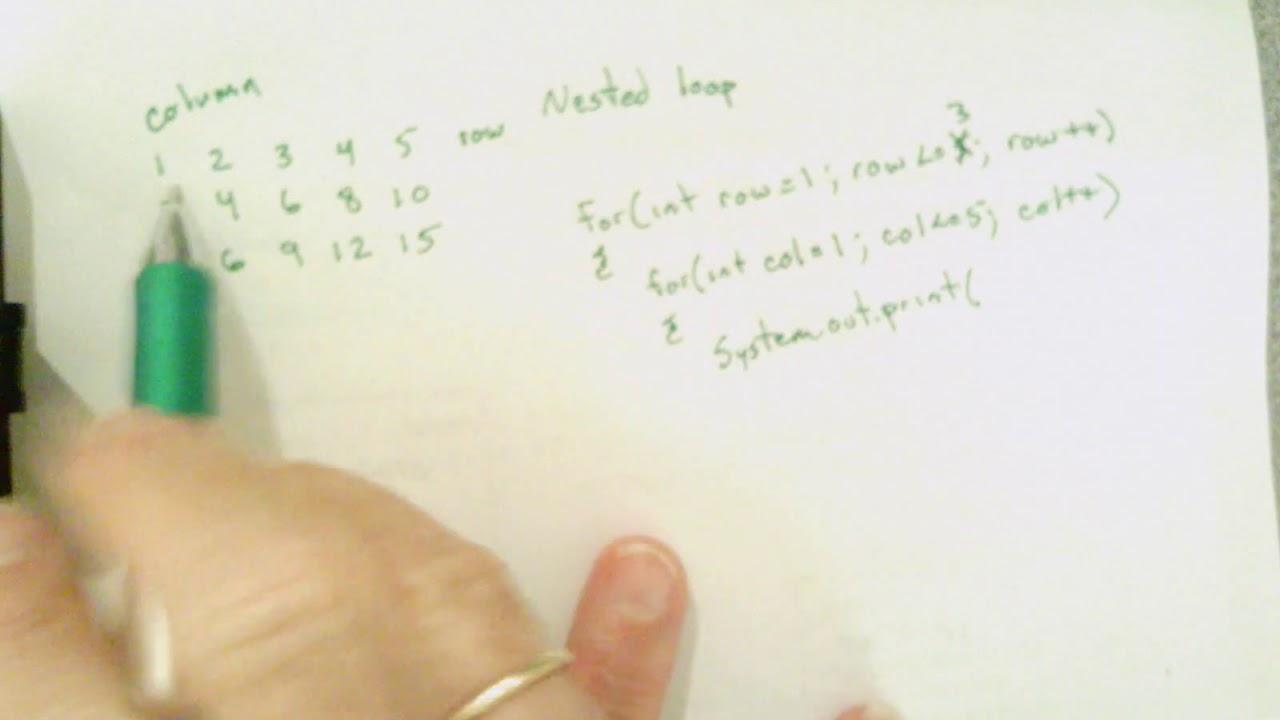 column
1 2 3 4 5 row
4 6 8 10
6 9 12 15
Nested loop
3
for(int row=1; row<=; row++)
{
for(int col=1; col<=5; col++)
{
System.out.print(